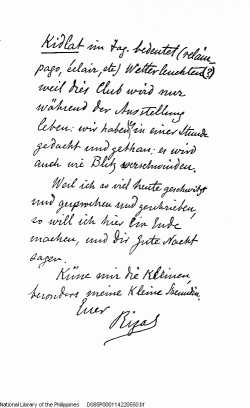 Kidlat im Tag. bedeutet (relám
pago, éclair, etc) Wetterleuchten(?)
weil dies Club wird nur
während der Ausstellung
leben: wir haben in einer Stunde
gedacht und gethan: es wird
auch wie Blitz verschwinden.
Weil ich so viel heute geschwitzt
und gesprochen und geschrieben,
so will ich hier Ein Ende
machen, und dir Gute Nacht
sagen.
Küsse mir die Kleinen,
besonders meine Kleine Freundin.
Euer
Rizal
National Library of the Philippines